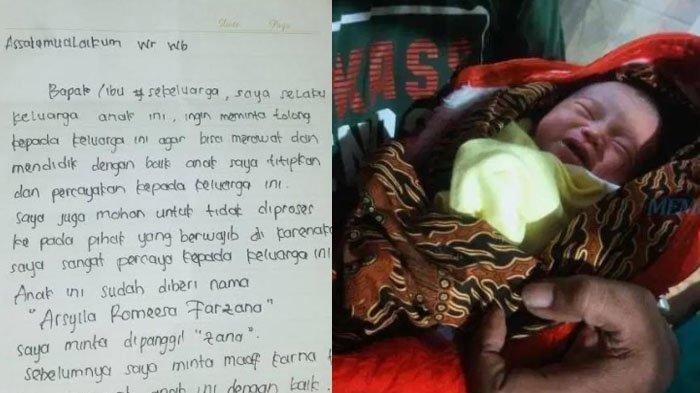 Date: Page:
Assalamualaikum Wr Wb
Bapak /ibu sekeluarga, saya selaku
keluarga anak ini, ingin meminta tolong
kepada keluarga ini agar bisa merawat dan
mendidik dengan baik anak saya titipkan
dan percayakan kepada keluarga ini.
Saya juga mohon untuk tidak diproses
ke pada pihak yang berwajib di karenak
saya sangat percaya kepada keluarga ini
Anak ini sudah diberi nama
"Arsyila Romeesa Farzana"
saya minta dipanggil "zana".
sebelumnya saya minta maaf karna
ini dengan baik.
KASS
MEM